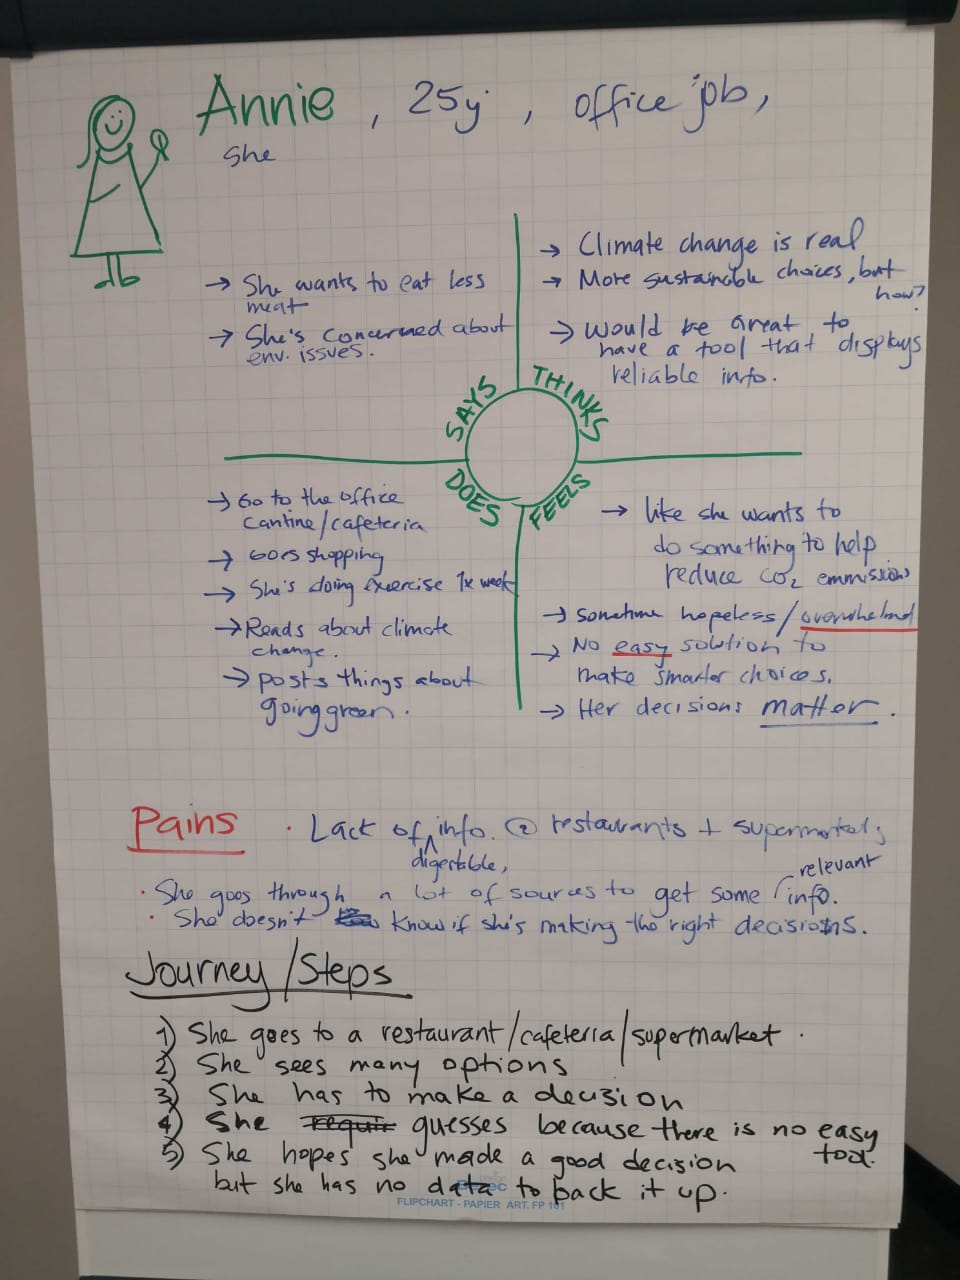 Annie, 25y, office job,
she
→ She wants to eat less
meat
→ She's concerned about
env. issues.
→ Climate change is real
→ More sustainable choices, but
how?
→ Would be great to
have a tool that displays
reliable info.
SAYS
THINKS
DOES
FEELS
→ Go to the office
cantine/cafeteria
→ Goes shopping
→ She's doing exercise 1x week
→ Reads about climate
change.
→ posts things about
going green.
→ like she wants to
do something to help
reduce CO2 emmissions
→ sometime hopeless/overwhelmd
→ No easy solution to
make smarter choices.
→ Her decisions matter.
Pains
· Lack of digestable, info. @ restaurants + supermarkets
· She goes through a lot of sources to get some relevant info.
· She doesn't know if she's making the right decisions.
Journey/Steps
1) She goes to a restaurant/cafeteria/supermarket.
2) She sees many options
3) She has to make a decision
4) She requir guesses because there is no easy
tool.
5) She hopes she made a good decision
but she has no data to back it up.
FLIPCHART - PAPIER ART. FP 101